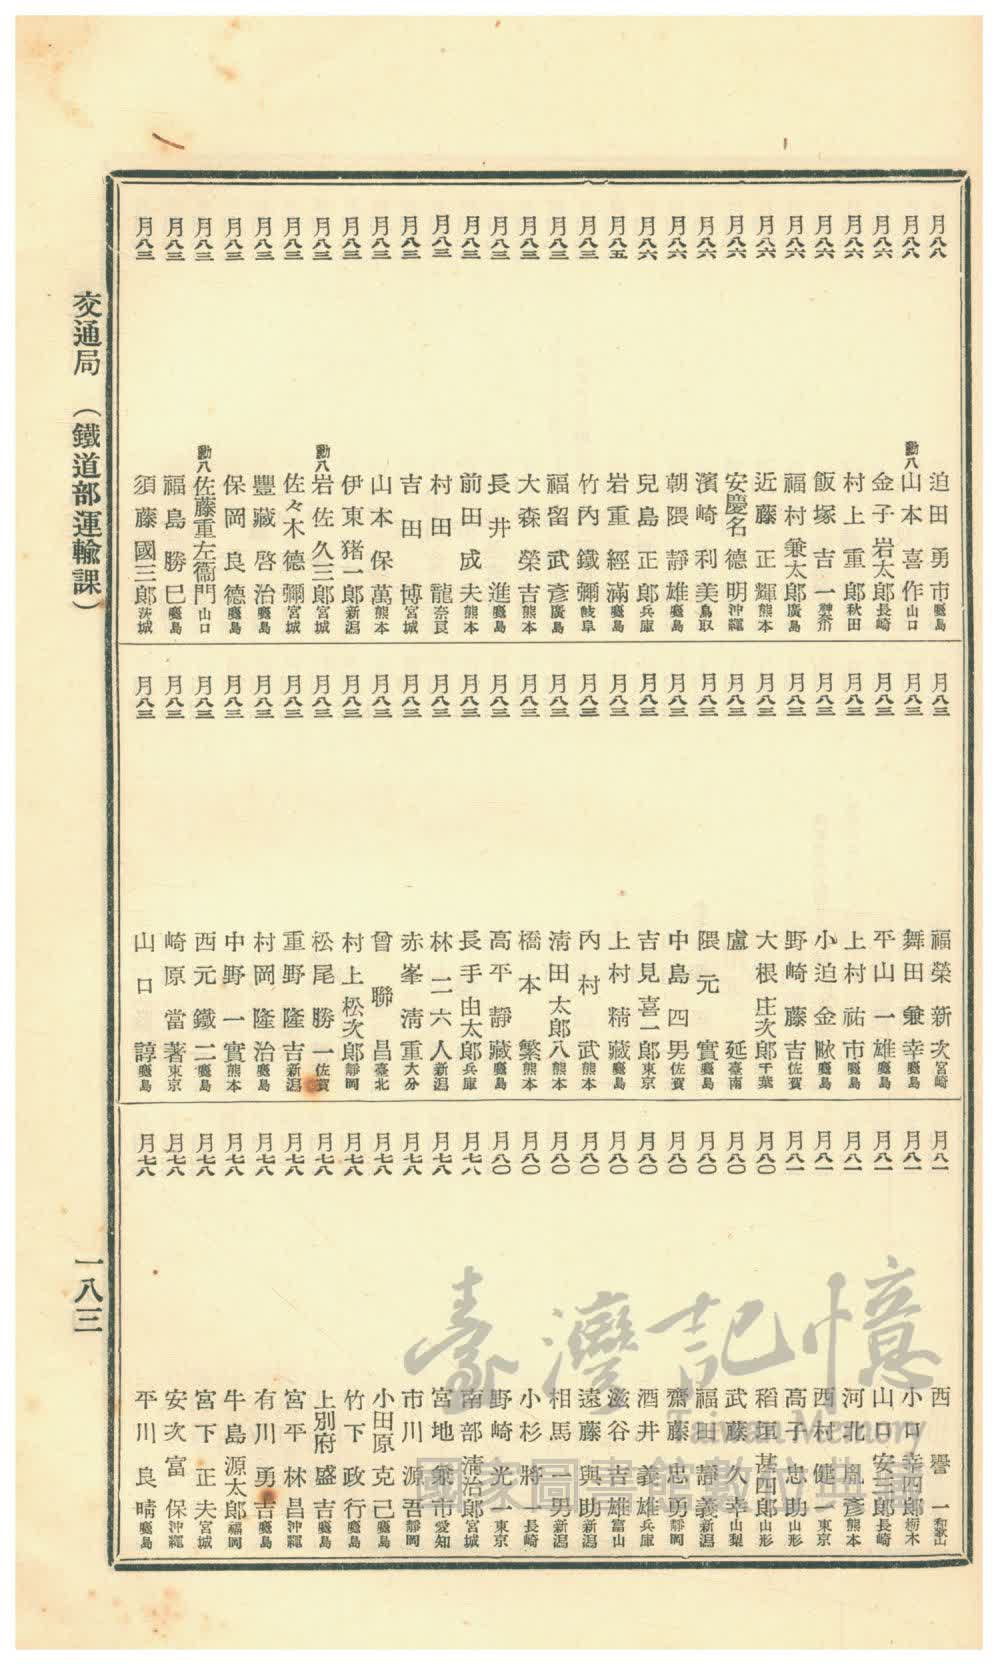 月八八 迫田勇市 鹿兒島
月八八 勳八 山本喜作 山口
月八六 金子岩太郎 長崎
月八六 村上重郎 秋田
月八六 飯塚吉一 神奈川
月八六 福村兼太郎 廣島
月八六 近藤正輝 熊本
月八六 安慶名德明 沖繩
月八六 濱崎利美 鳥取
月八六 朝隈靜雄 鹿兒島
月八六 兒島正郎 兵庫
月八五 岩重經滿 鹿兒島
月八三 竹內鐵彌 岐阜
月八三 福留武彥 廣島
月八三 大森榮吉 熊本
月八三 長井進 鹿兒島
月八三 前田成夫 熊本
月八三 村田龍 奈良
月八三 吉田博 宮城
月八三 山本保萬 熊本
月八三 伊東猪一郎 新潟
月八三 勳八 岩佐久三郎 宮城
月八三 佐々木德彌 宮城
月八三 豐藏啓治 鹿兒島
月八三 保岡良德 鹿兒島
月八三 勳八 佐藤重左衞門 山口
月八三 福島勝巳 鹿兒島
月八三 須藤國三郎 茨城
月八三 福榮新次 宮崎
月八三 舞田兼幸 鹿兒島
月八三 平山一雄 鹿兒島
月八三 上村祐市 鹿兒島
月八三 小迫金 鹿兒島
月八三 野崎藤吉 佐賀
月八三 大根庄次郎 千葉
月八三 盧延 臺南
月八三 隈元實 鹿兒島
月八三 中島四男 佐賀
月八三 吉見喜一郎 東京
月八三 上村精藏 鹿兒島
月八三 內村武 熊本
月八三 淸田太郎八 熊本
月八三 橋本繁 熊本
月八三 高平靜藏 鹿兒島
月八三 長手由太郎 兵庫
月八三 林二六人 新潟
月八三 赤峯淸重 大分
月八三 曾聯昌 臺北
月八三 村上松次郎 靜岡
月八三 松尾勝一 佐賀
月八三 重野隆吉 新潟
月八三 村岡隆治 鹿兒島
月八三 中野一實 熊本
月八三 西元鐵二 鹿兒島
月八三 崎原當著 東京
月八三 山口諄 鹿兒島
月八一 西譽一 和歌山
月八一 小口幸四郎 栃木
月八一 山口安三郎 長崎
月八一 河北胤彥 熊本
月八一 西村健一 東京
月八一 高子忠助 山形
月八〇 稻垣甚四郎 山形
月八〇 武藤久幸 山梨
月八〇 福田靜義 新潟
月八〇 齋藤忠勇 靜岡
月八〇 酒井義雄 兵庫
月八〇 滋谷吉雄 富山
月八〇 遠藤與助 新潟
月八〇 相馬一男 新潟
月八〇 小杉將一 長崎
月八〇 野崎光一 東京
月七八 南部淸治郎 宮城
月七八 宮地粂市 愛知
月七八 市川源吾 靜岡
月七八 小田原克己 鹿兒島
月七八 竹下政行 鹿兒島
月七八 上別府盛吉 鹿兒島
月七八 宮平林昌 沖繩
月七八 有川勇吉 鹿兒島
月七八 牛島源太郎 福岡
月七八 宮下正夫 宮城
月七八 安次富保 沖繩
月七八 平川良晴 鹿兒島
交通局 (鐵道部運輸課)
一八三
臺灣記憶
Taiwan Memory
國家圖書館數位典藏